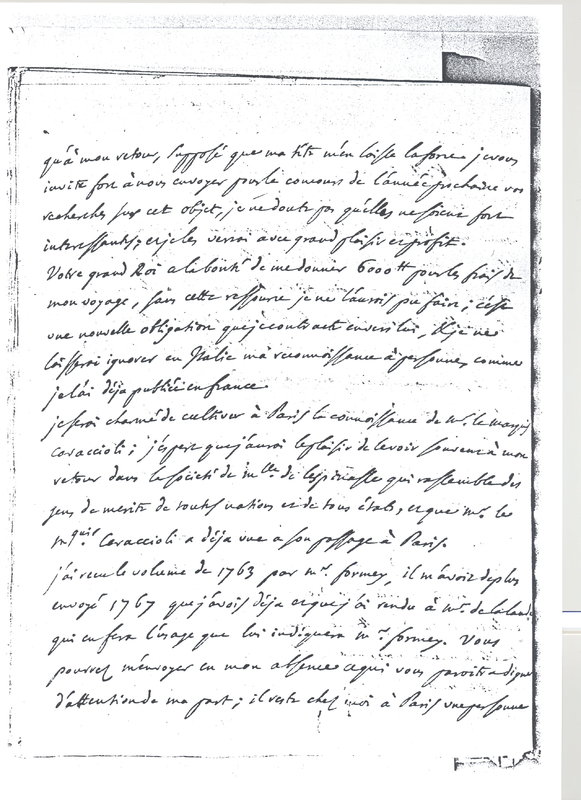 qu'à mon retour, supposé que ma tête m'en laisse la force. je vous
invite fort à nous envoyer pour le concours de l'année prochaine vos
recherches sur cet objet, je ne doute pas qu'elles ne soient fort
interessantes, et je les verrai avec grand plaisir et profit.
Votre grand Roi a la bonté de me donner 6000 ₶ pour les frais de
mon voyage, sans cette ressource je ne l'aurois pu faire; c'est
une nouvelle obligation que je contracte envers lui, & je ne
laisserai ignorer en Italie ma reconnoissance à personne, comme
je l'ai déja publiée en france
je serai charmé de cultiver à Paris la connoissance de Mr. le marquis
Caraccioli; j'espere que j'aurai le plaisir de le voir souvent à mon
retour dans la societé de mlle de lespinasse qui rassemble des
gens de merite de toutes nations et de tous états, et que mr. le
mquis Caraccioli a déja vue a son passage à Paris.
j'ai recu le volume de 1763 par mr. formey, il m'avoit de plus
envoyé 1767 que j'avois déja et que j'ai rendu à mr. de la lande
qui en fera l'usage que lui indiquera mr. formey. Vous
pourrez m'envoyer en mon absence ce qui vous paroitra digne
d'attention de ma part; il reste chez moi à Paris une personne